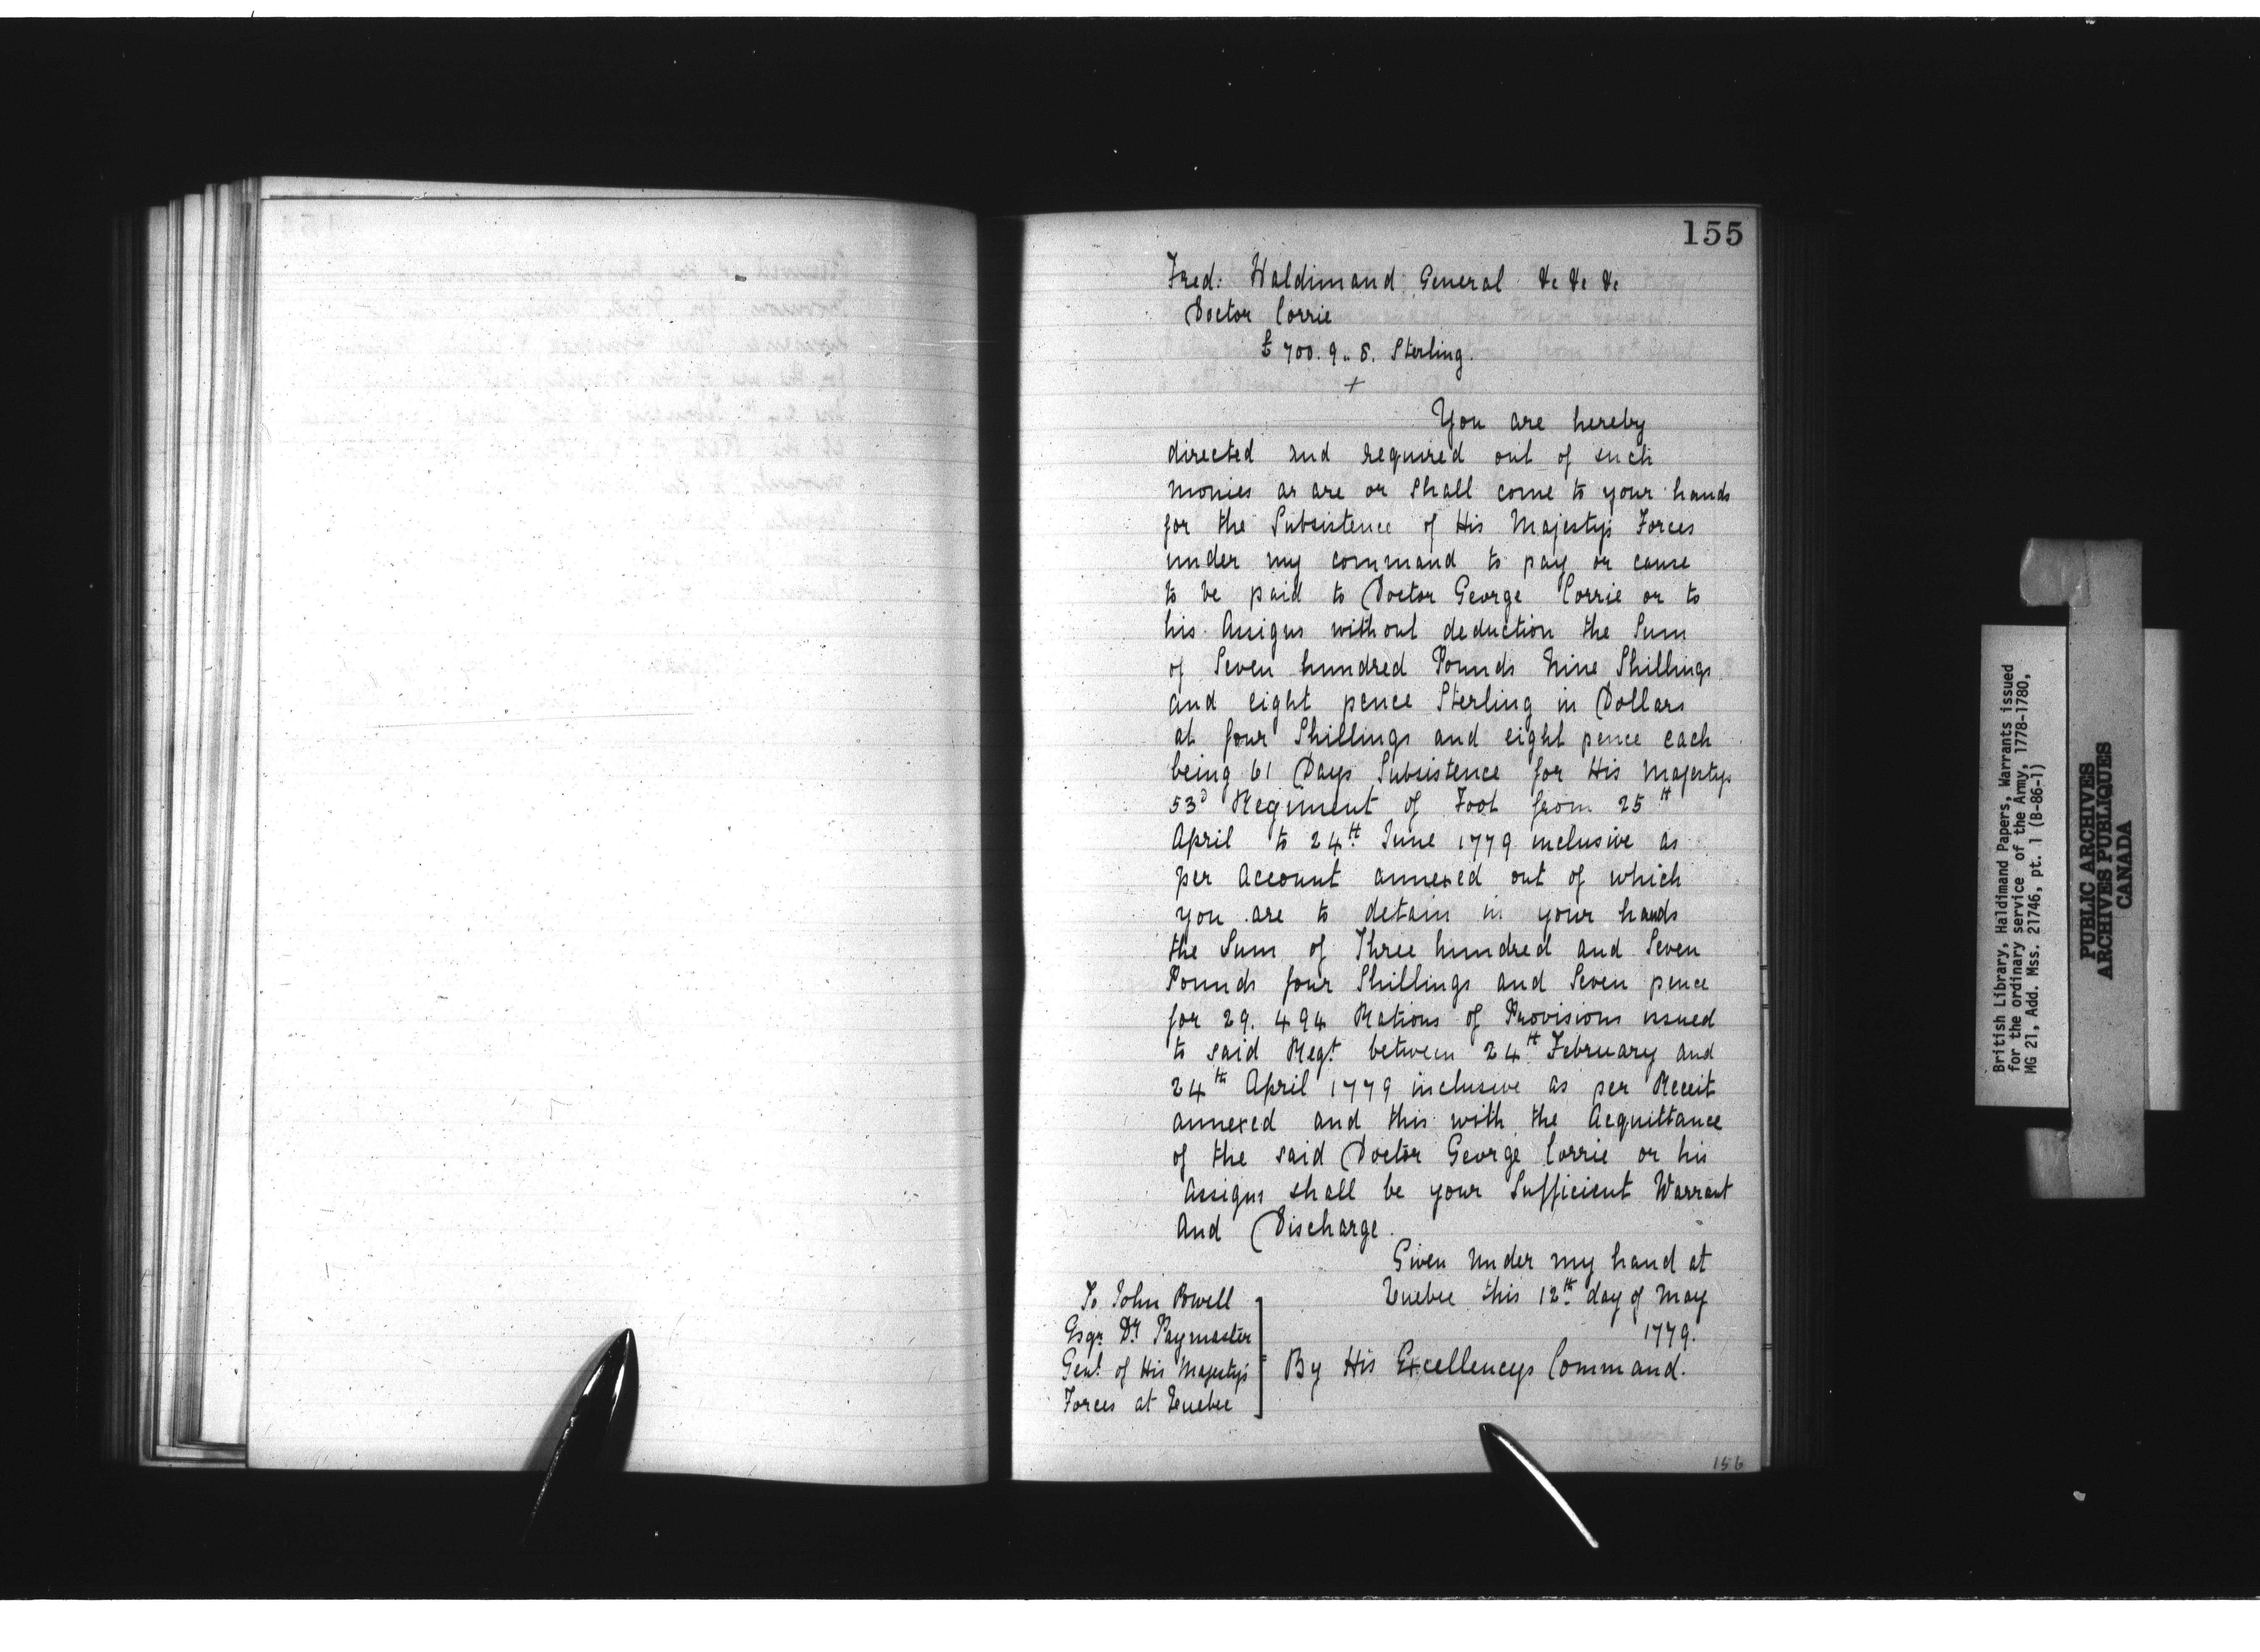 155
Fred: Haldimand General &c &c &c
Doctor Corrie
£700.9..8. Sterling.
+
You are hereby
directed and required out of such
monies as are or shall come to your hands
for the Subsistence of His Majestys Forces
under my command to pay or cause
to be paid to Doctor George Corrie or to
his Assigns without deduction the Sum
of Seven hundred Pounds Nine Shillings
and eight pence Sterling in Dollars
at four Shillings and eight pence each
being 61 Days Subsistence for His Majestys
53d Regiment of Foot from 25th
April to 24th June 1779 inclusive as
per Account annexed out of which
you are to detain in your hands
the Sum of Three hundred and Seven
Pounds four Shillings and Seven pence
for 29.494 Rations of Provisions issued
to said Regt between 24th February and
24th April 1779 inclusive as per Receit
annexed and this with the Acquittance
of the said Doctor George Corrie or his
Assigns shall be your Sufficient Warrant
and Discharge.
Given under my hand at
Quebec this 12th day of May
1779.
To John Powell
Esqr Dy Paymaster
Genl of His Majestys
Forces at Quebec
By His Excellencys Command.
156
British Library, Haldimand Papers, Warrants issued
for the ordinary service of the Army, 1778-1780,
MG 21, Add. Mss. 21746, pt. 1 (B-86-1)
PUBLIC ARCHIVES
ARCHIVES PUBLIQUES
CANADA